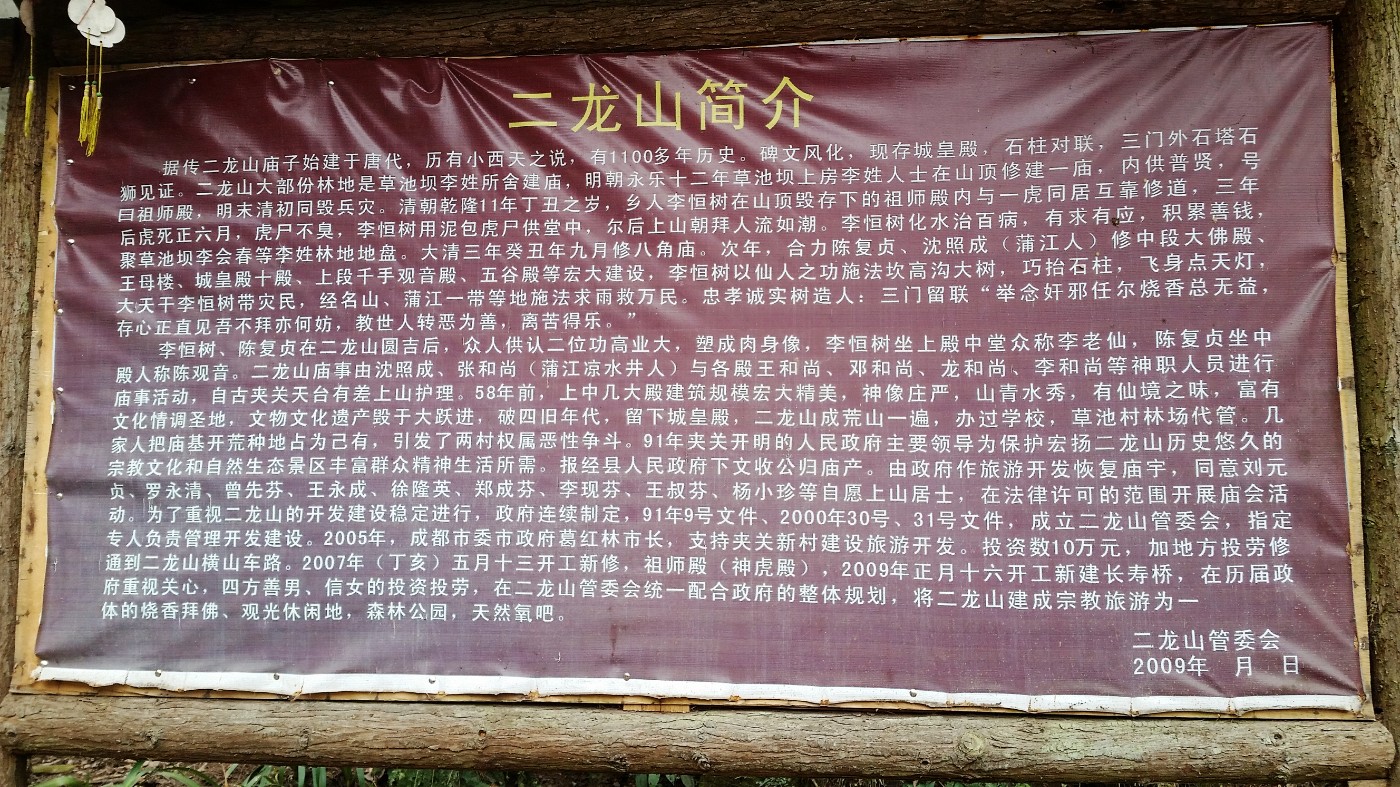 二龙山简介
据传二龙山庙子始建于唐代，历有小西天之说，有1100多年历史。碑文风化，现存城皇殿，石柱对联，三门外石塔石
狮见证。二龙山大部份林地是草池坝李姓所舍建庙，明朝永乐十二年草池坝上房李姓人士在山顶修建一庙，内供普贤，号
曰祖师殿，明末清初同毁兵灾。清朝乾隆11年丁丑之岁，乡人李恒树在山顶毁存下的祖师殿内与一虎同居互靠修道，三年
后虎死正六月，虎尸不臭，李恒树用泥包虎尸供堂中，尔后上山朝拜人流如潮。李恒树化水治百病，有求有应，积累善钱，
聚草池坝李会春等李姓林地地盘。大清三年癸丑年九月修八角庙。次年，合力陈复贞、沈照成（蒲江人）修中段大佛殿、
王母楼、城皇殿十殿、上段千手观音殿、五谷殿等宏大建设，李恒树以仙人之功施法坎高沟大树，巧抬石柱，飞身点天灯，
大天干李恒树带灾民，经名山、蒲江一带等地施法求雨救万民。忠孝诚实树造人：三门留联“举念奸邪任尔烧香总无益，
存心正直见吾不拜亦何妨，教世人转恶为善，离苦得乐。”
李恒树、陈复贞在二龙山圆吉后，众人供认二位功高业大，塑成肉身像，李恒树坐上殿中堂众称李老仙，陈复贞坐中
殿人称陈观音。二龙山庙事由沈照成、张和尚（蒲江凉水井人）与各殿王和尚、邓和尚、龙和尚、李和尚等神职人员进行
庙事活动，自古夹关天台有差上山护理。58年前，上中几大殿建筑规模宏大精美，神像庄严，山青水秀，有仙境之味，富有
文化情调圣地，文物文化遗产毁于大跃进，破四旧年代，留下城皇殿，二龙山成荒山一遍，办过学校，草池村林场代管。几
家人把庙基开荒种地占为己有，引发了两村权属恶性争斗。91年夹关开明的人民政府主要领导为保护宏扬二龙山历史悠久的
宗教文化和自然生态景区丰富群众精神生活所需。报经县人民政府下文收公归庙产。由政府作旅游开发恢复庙宇，同意刘元
贞、罗永清、曾先芬、王永成、徐隆英、郑成芬、李现芬、王叔芬、杨小珍等自愿上山居士，在法律许可的范围开展庙会活
动。为了重视二龙山的开发建设稳定进行，政府连续制定，91年9号文件、2000年30号、31号文件，成立二龙山管委会，指定
专人负责管理开发建设。2005年，成都市委市政府葛红林市长，支持夹关新村建设旅游开发。投资数10万元，加地方投劳修
通到二龙山横山车路。2007年（丁亥）五月十三开工新修，祖师殿（神虎殿），2009年正月十六开工新建长寿桥，在历届政
府重视关心，四方善男、信女的投资投劳，在二龙山管委会统一配合政府的整体规划，将二龙山建成宗教旅游为一
体的烧香拜佛、观光休闲地，森林公园，天然氧吧。
二龙山管委会
2009年 月 日